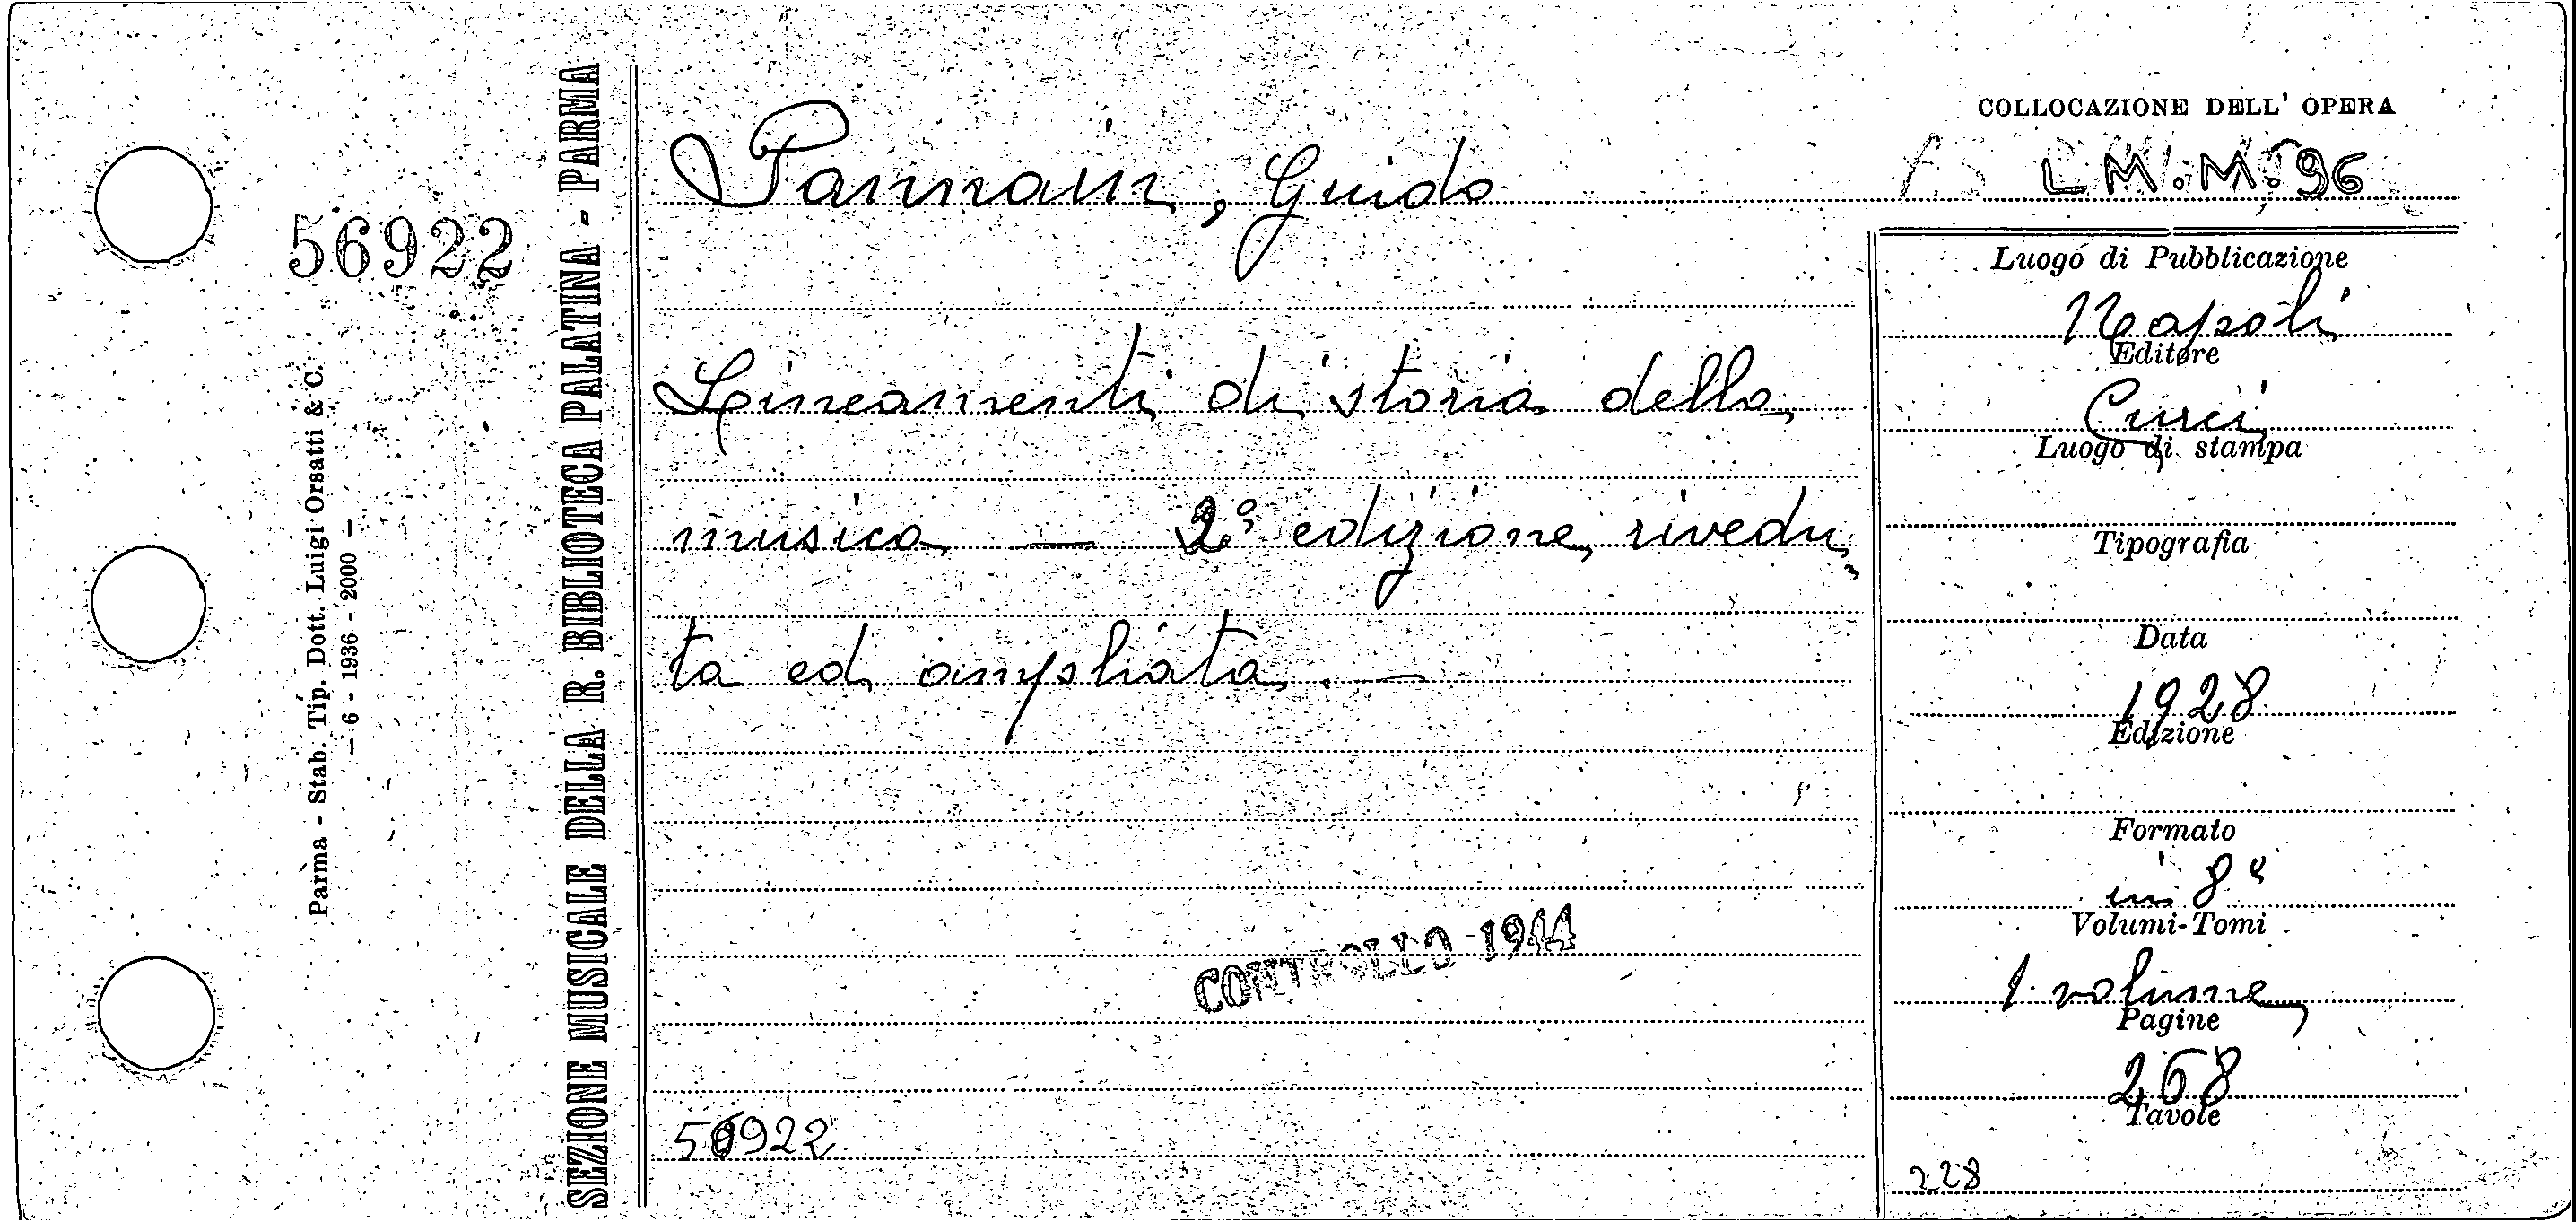 56922
Parma - Stab. Tip. Dott. Luigi Orsatti & C.
— 6 - 1936 - 2000 —
SEZIONE MUSICALE DELLA R. BIBLIOTECA PALATINA - PARMA
Pannain, Guido
Lineamenti di storia della
musica — 2ª edizione rivedu
ta ed ampliata. —
CONTROLLO 1944
56922
COLLOCAZIONE DELL' OPERA
L M. M. 96
Luogo di Pubblicazione
Napoli
Editore
Curci
Luogo di stampa
Tipografia
Data
1928
Edizione
Formato
in 8º
Volumi-Tomi
1 volume
Pagine
268
Tavole
228